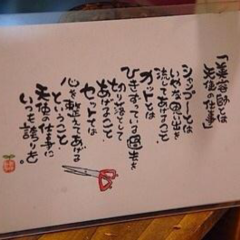 「美容師は
天使の仕事」
シャンプーとは
いやな思い出を
流してあげること
カットとは
ひきずっている過去を
切り落として
あげること
セットとは
心を整えてあげる
ということ
天使の仕事に
いつも誇りを。